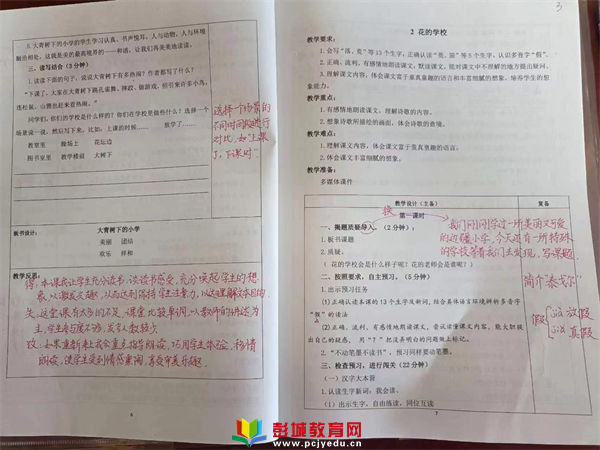 6.大青树下的小学的学生学习认真,书声悦耳,人与动物,人与环境
融洽相处,这就是美的最高境界的——和谐,让我们再美美地读读。
三、读写结合(3分钟)
1.读读下面的句子,说说大青树下有多热闹?作者都写了什么?
"下课了,大家在大青树下跳孔雀舞、摔跤、做游戏,招引来许多小鸟,
连松鼠、山狸也赶来看热闹。"
同学们,你们的学校是什么样的?你们在学校是做些什么?选择一个
场景说一说,然后写下来。比如:上课的时候…… 放学了……
教室里 操场上 花坛边
图书室里 教学楼前 大树下
选择一个场景的
不同时间段进行
对比,如"上课
了,下课时"
板书设计:
大青树下的小学
美丽 团结
欢乐 祥和
教学反思:
得:本课我让学生充分读书,谈读书感受,充分唤起学生的想
象,以激发兴趣,从而达到保持学生注意力,以达理解文本目的。
失:这堂课有太多的不足,课堂比较单调,以教师的讲述为
主,学生参与度不够,发言人数较少
改:如果重新上我会重点指导朗读,巧用学生体验,移情
朗读,使学生受到情感熏陶,享受审美乐趣。
6
3
2 花的学校
教学要求:
1.会写"落、荒"等13个生字,正确认读"荒、笛"等5个生字,认识多音字"假"。
2.正确、流利、有感情地朗读课文,默读课文,能对课文中不理解的地方提出疑问。
3.理解课文内容,体会课文富于童真童趣的语言和丰富细腻的想象,培养学生的想
象能力。
教学重点:
1.有感情地朗读课文,理解诗歌的内容。
2.想象诗歌所描绘的画面,体会诗歌的意境。
教学难点:
1.理解课文内容,体会课文富于童真童趣的语言。
2.体会课文丰富细腻的想象。
教学准备:
多媒体课件
教学设计(主备)
复备
第一课时
换
一、揭题质疑导入。(2分钟):
1.板书课题
2.质疑。
(花的学校会是什么样子呢?花的老师会是谁呢?)
我们刚刚学过一所美丽又可爱
的边疆小学,今天还有一所特殊
的学校等着我们去发现,写课题.
二、按照要求,自主预习。(5分钟)
1.出示预习任务
(1)正确认读本课的13个生字及新词,结合具体语言环境辨析多音字
"假"的读法
(2)正确、流利、有感情地朗读课文,尝试读懂课文内容,能大胆提
出自己的疑惑,用"?"把没弄明白的问题做上标记。
2."不动笔墨不读书",预习同样要动笔墨。
简介"泰戈尔"
假
jià 放假
jiǎ 真假
三、检查预习,进行闯关(22分钟)
(一)汉字大本营
1.认读生字新词:我会读。
(1)出示生字,自由练读,同位互读
7
彭城教育网
www.pcjyedu.cn